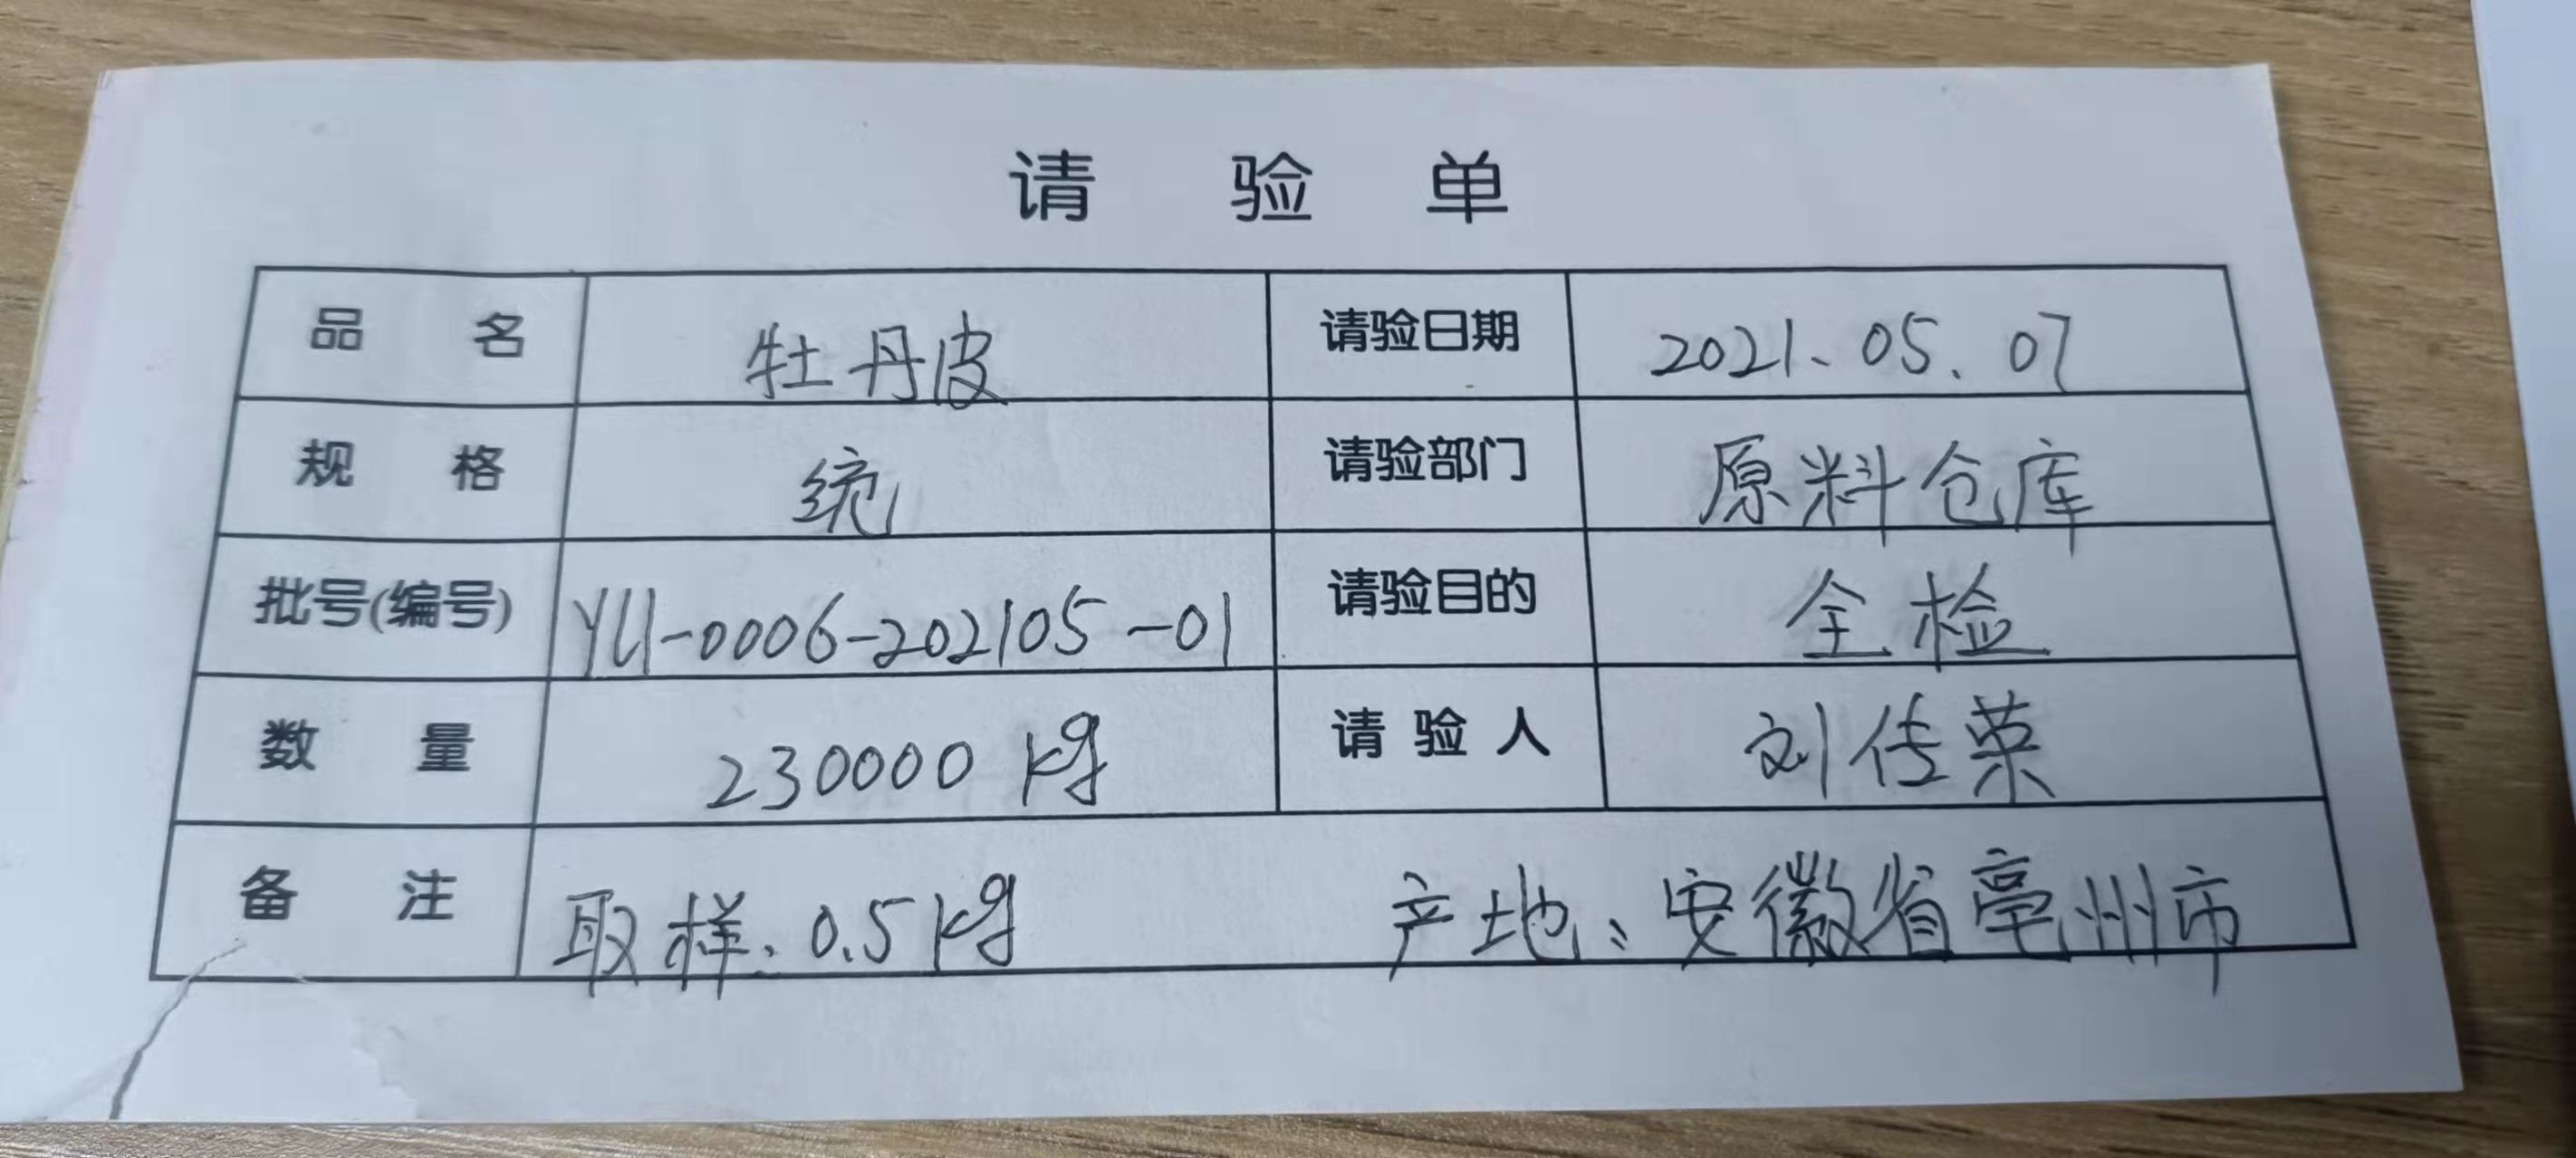 请 验 单
品 名 牡丹皮 请验日期 2021.05.07
规 格 统 请验部门 原料仓库
批号(编号) YL1-0006-202105-01 请验目的 全检
数 量 230000 kg 请 验 人 刘传荣
备 注 取样:0.5kg 产地:安徽省亳州市